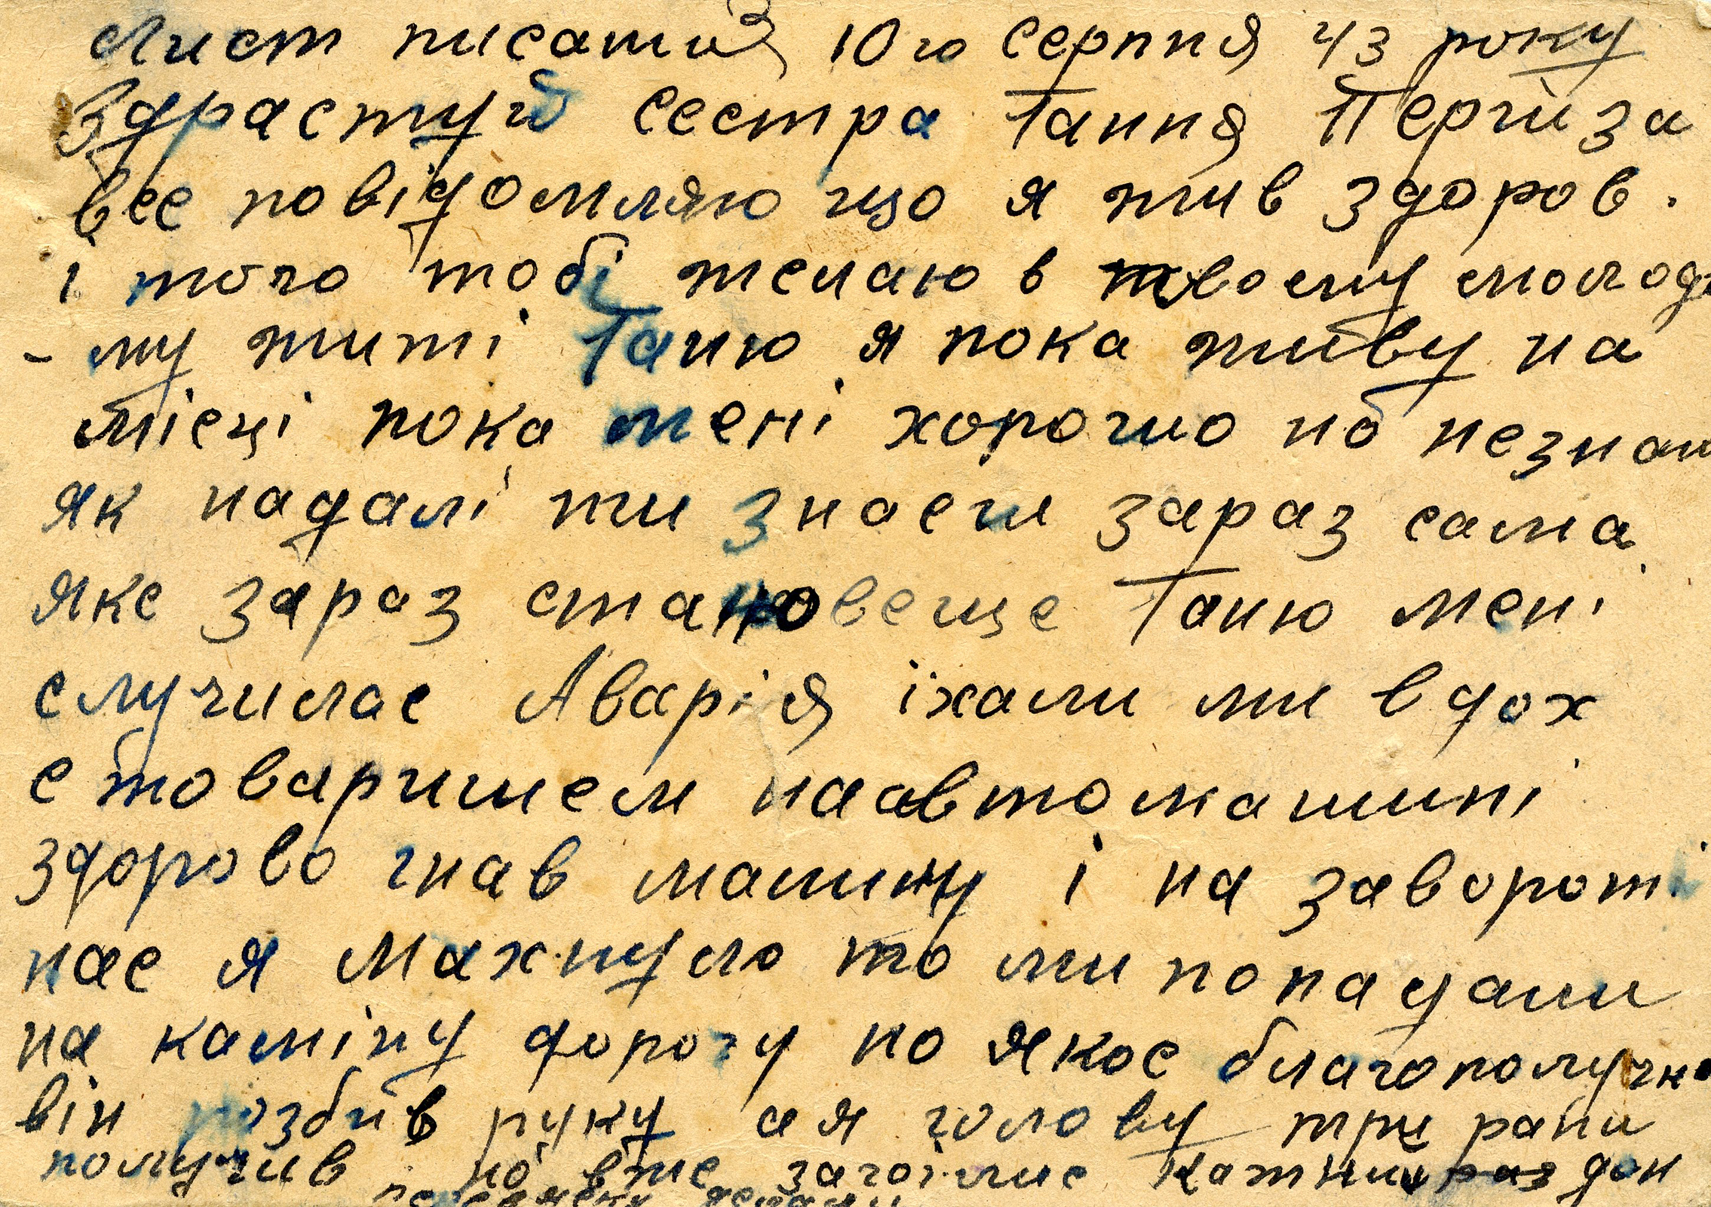 Лист писаний 10го Серпня 43 року
Здрастуй Сестра Тання Перш за
все повідомляю що я жив здоров.
і того тобі желаю в твоєму молодо
- му житі Таню я пока живу на
місці пока мені хорошо но незнаю
як надалі ти знаєш зараз сама
яке зараз становеще Таню мені
случилас Аварія їхали ми вдох
с товаришем наавтомашині
здорово гнав машину і на завороті
нас я Махнуло то ми попадали
на каміну дорогу но якос благополучно
він розбив руку а я голову три рани
получив но вже загоїлис кажний раз дон
перевязку делали